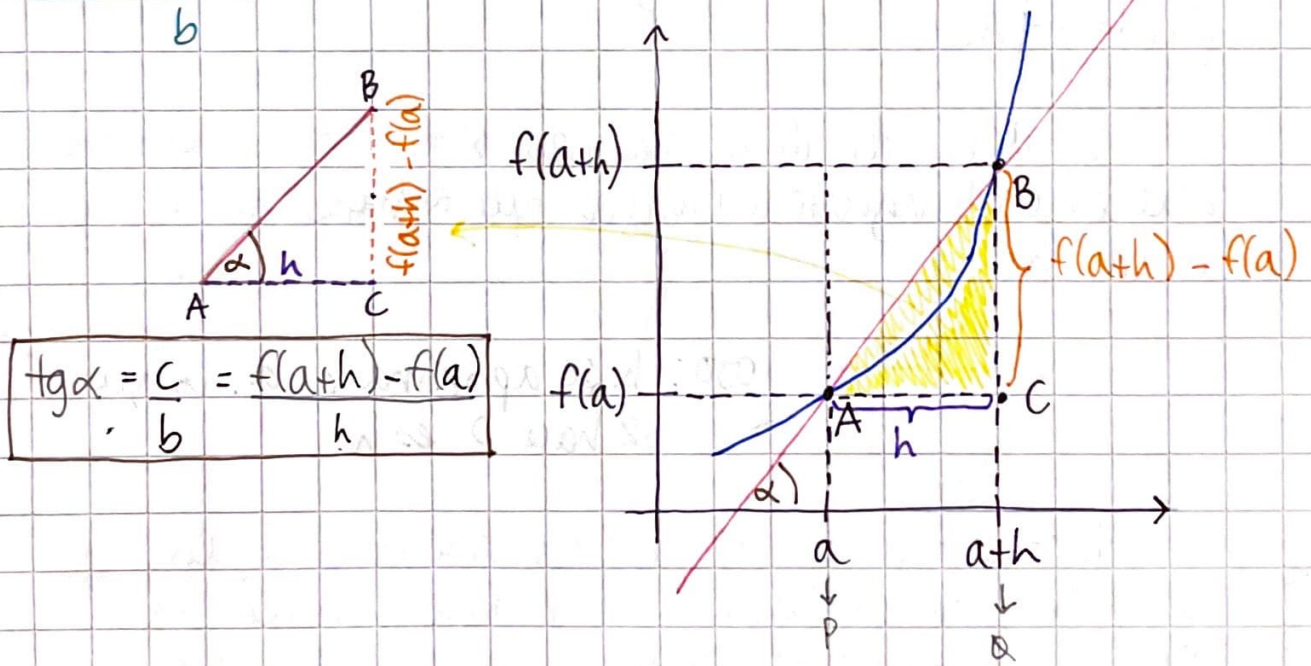 b
B
f(a+h) - f(a)
α h
A C
tgα = c/b = f(a+h)-f(a)/h
f(a+h)
B
f(a+h) - f(a)
f(a)
A
C
h
α
a
a+h
↓ ↓
P
Q